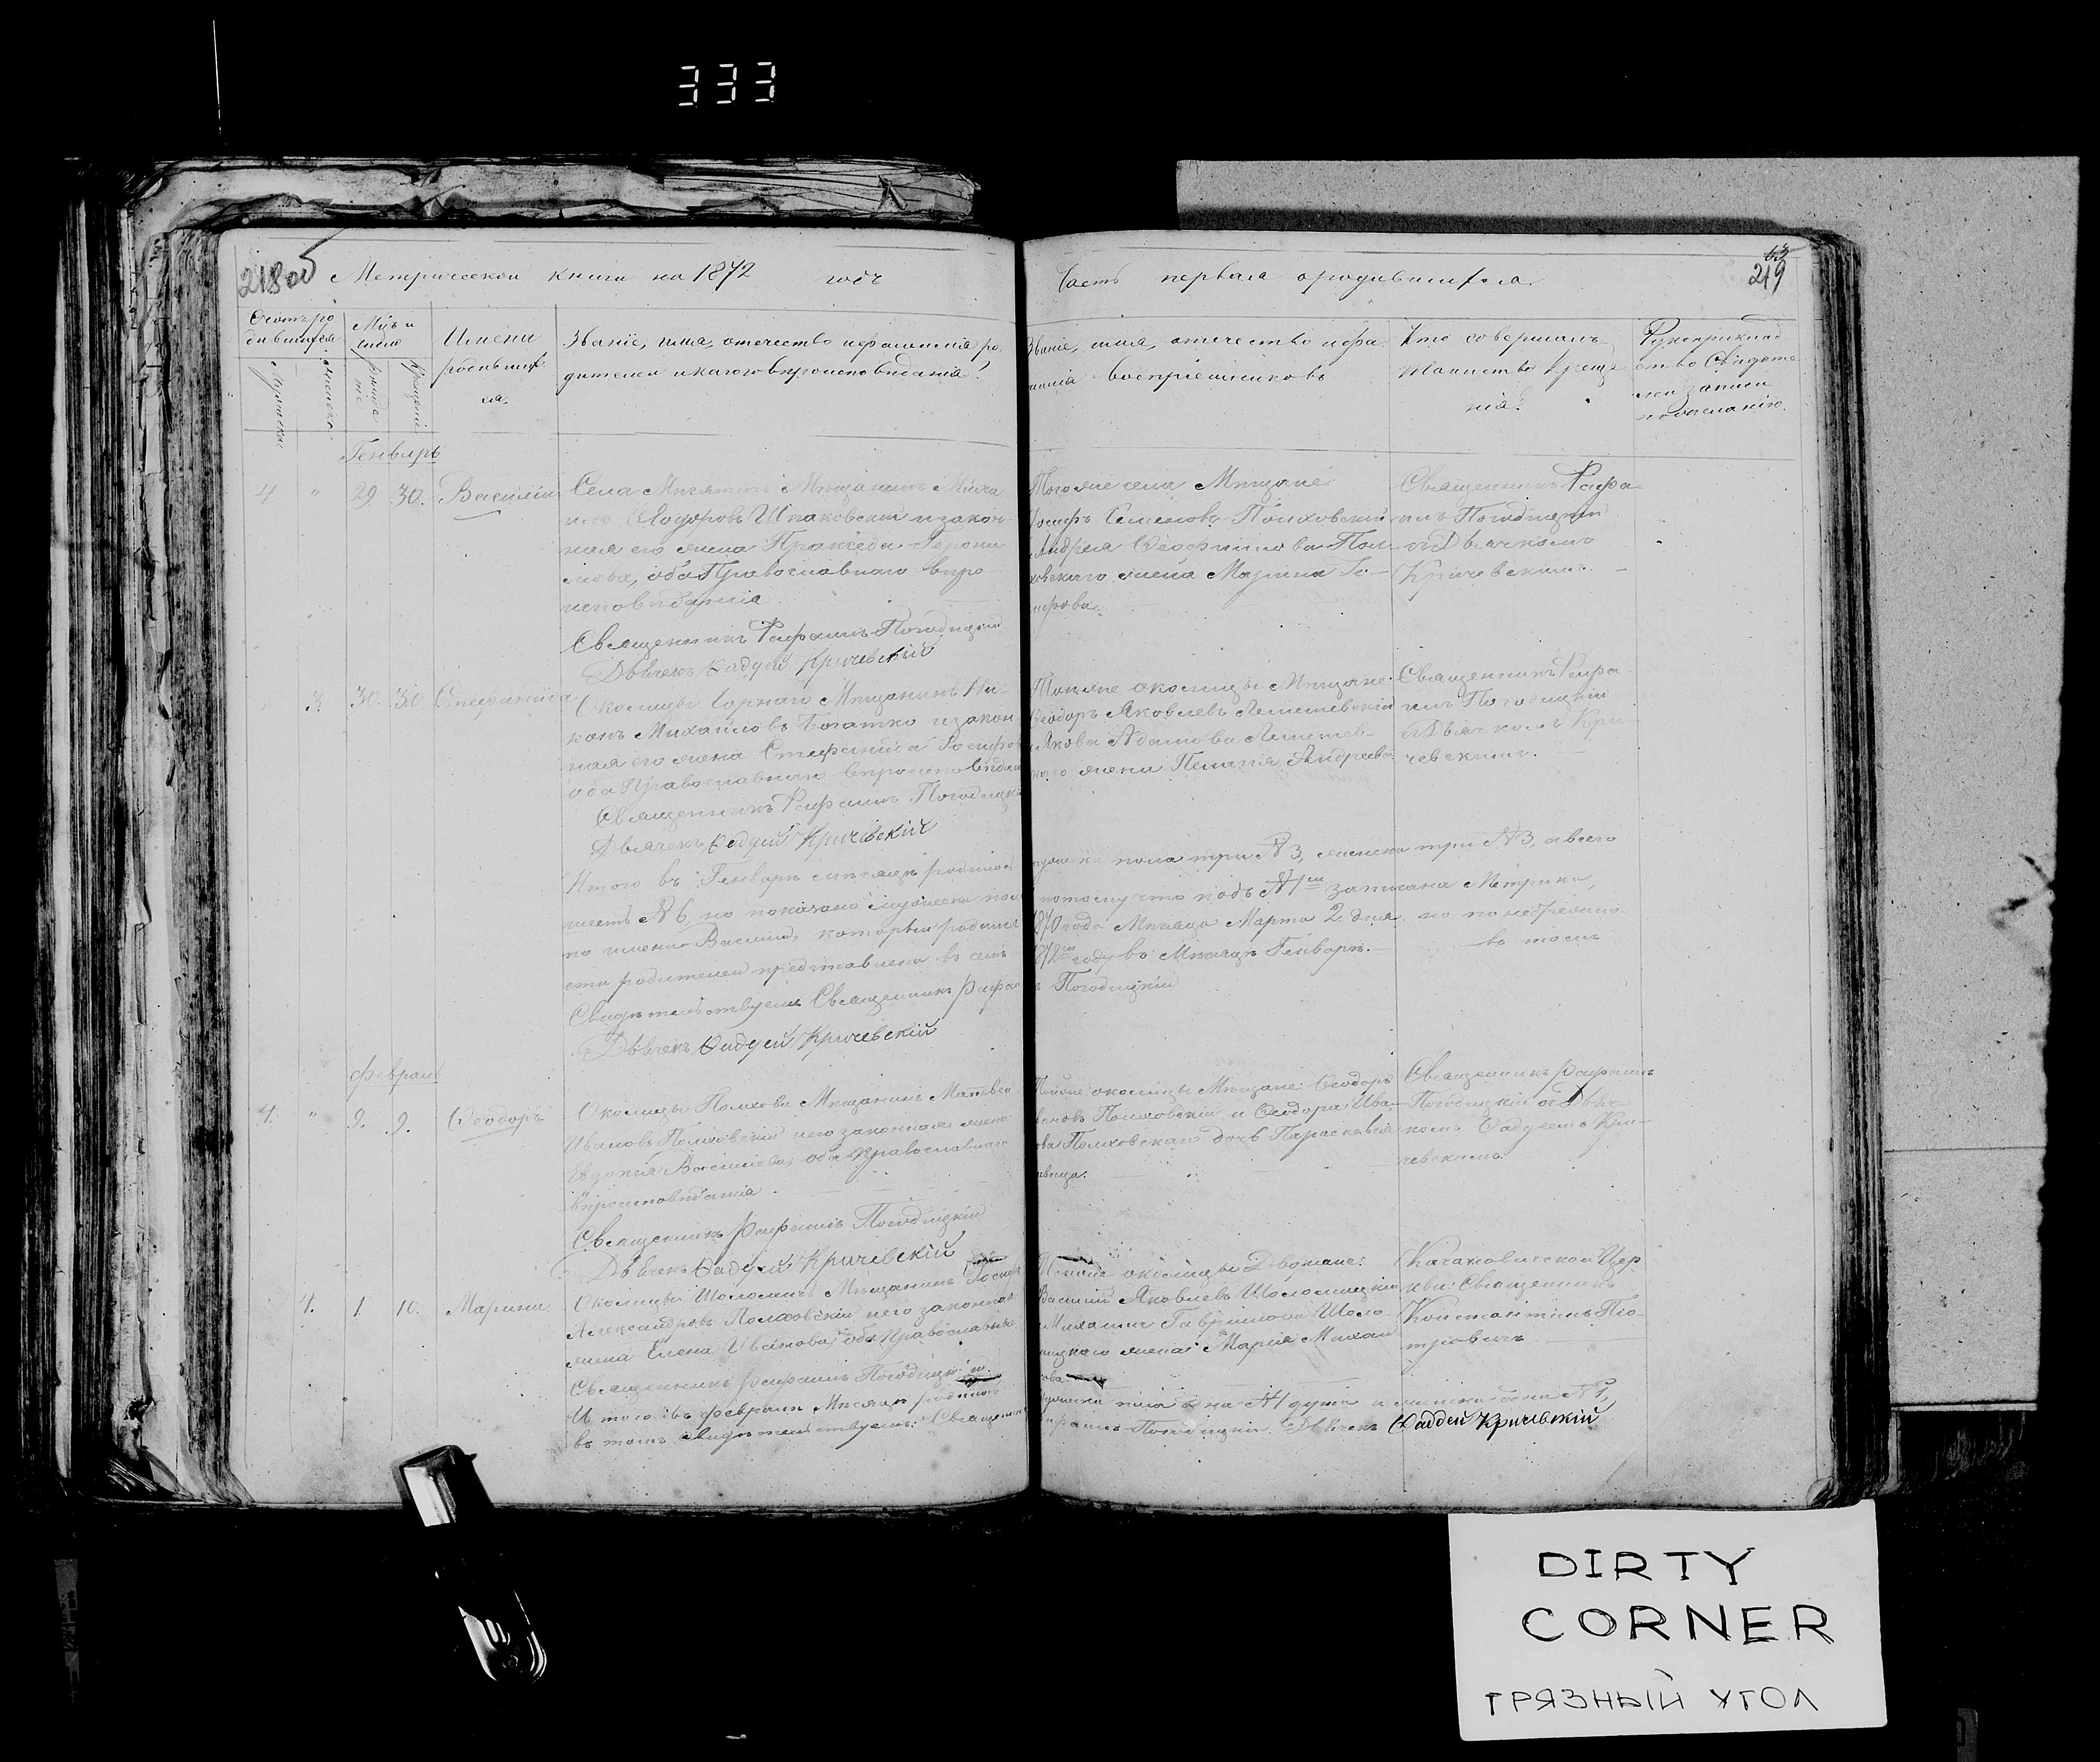 333
218об Метрической книги на 1872 годъ
Часть первая о родившихся.
63
219
Счетъ ро
дившихся
Мужеска
Женска
Мѣс. и
число
рожде
нія
крещенія
Имена
родивших
ся.
Званіе, имя, отечество и фамилія ро
дителей и какого вѣроисповѣданія?
Званіе, имя, отечество и фа
милія воспріемниковъ
Кто совершалъ
таинство креще
нія?
Рукоприклад
ство свидѣте
лей записи
по желанію.
Генварь
4 " 29. 30. Василій
Села Мещанинъ Миха
илъ Ѳеодоровъ Шпаковскій и закон
ная его жена Праксѣда Герони
мова, оба Православнаго вѣро
исповѣданія
Священникъ Рафаилъ Погодицкій
Дьячекъ Ѳадѣй Кричевскій
Тогоже села Мещане
Іосифъ Семеновъ Полховскій
Андрея Ѳеофилова Пол
ховскаго жена Марина Іо
сифова.
Священникъ Рафа
илъ Погодицкій
съ Дьячкомъ
Кричевскимъ.
" 3. 30. 30. Стефанида
Околицы Мещанинъ Ни
конъ Михайловъ Богатко и закон
ная его жена Стефанида Іосифо
оба Православнаго вѣроисповѣдан
Священникъ Рафаилъ Погодицкі
Дьячекъ Ѳадѣй Кричевскій
Тойже околицы Мещане
Ѳеодоръ Яковлевъ Лемешевскій
и Якова Адамова Лемешев
жена Пелагія Андреева
Священникъ Рафа
илъ Погодицкій
съ Дьячкомъ Кри
чевскимъ.
Итого въ Генварѣ мѣсяцѣ родилось
мужеска пола три №3, женска три №3, а всего
шесть №6, но показано мужеска пол
потому что подъ №1мъ записана Метрика,
по имени Василій, который родился
1870 года Мѣсяца Марта 2 дня, но по небрежно
сти родителей представлена въ семъ
1872мъ году въ Мѣсяцѣ Генварѣ.
въ томъ
Свидѣтельствуемъ Священникъ Рафаи
лъ Погодицкій
Дьячекъ Ѳадѣй Кричевскій
Февраль
4. " 9. 9. Ѳеодоръ
Околицы Полхова Мещанинъ Матвей
Ивановъ Полховскій и его законная жена
Евдокія Васильева, оба Православнаго
вѣроисповѣданія.
Священникъ Рафаилъ Погодицкій
Дьячекъ Ѳадѣй Кричевскій
Тойже околицы Мещане: Ѳеодоръ
Полховскій и Ѳеодора Ива
нова Полховскаго дочь Параскевія
дѣвица.
Священникъ Рафаилъ
Погодицкій съ Дьяч
комъ Ѳадѣемъ Кри
чевскимъ
4. 1. 10. Марина
Околицы Шоломичъ Мещанинъ Іосифъ
Александровъ Полховскій и его законная
жена Елена Иванова, оба Православные.
Священникъ Рафаилъ Погодицкій.
Тойже околицы Дворяне:
Василій Яковлевъ Шоломицкій
Михаила Гавріилова Шоло
мицкаго жена Марія Михаи
лова
Качановичской Цер
кви Священникъ
Константинъ Пio
тровичъ
И того въ Февралѣ Мѣсяцѣ родилось
мужеска пола одна №1 душа и женска одна №1,
въ томъ свидѣтельствуемъ: Священникъ
Рафаилъ Погодицкій. Дьячекъ Ѳаддей Кричевскій
DIRTY
CORNER
ГРЯЗНЫЙ УГОЛ